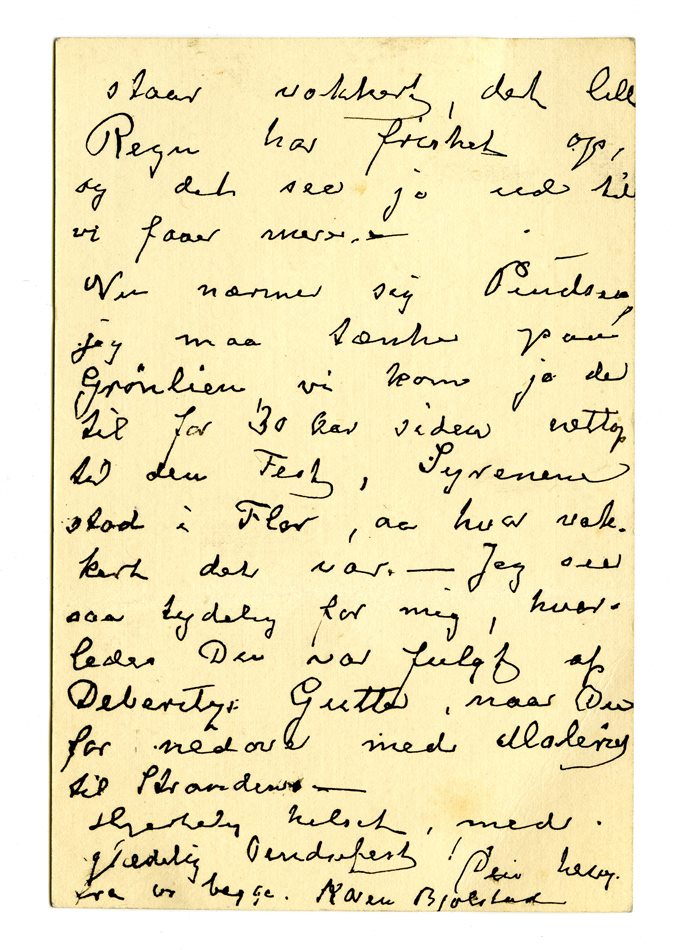 staar vakkert, det lille
Regn har frisket op,
og det seer jo ud til
vi faaer mere. —
Nu nærmer sig Pindsen,
jeg maa tænke paa
Grönlien, vi kom jo de
til for 30 aar siden nettop
til den Fest, Syrenene
stod i Flor, aa hvor vak-
kert det var. — Jeg seer
saa tydelig for mig, hvor-
ledes Du var fulgt af
Gutter, naar Du
for nedover med Malerisag
til Stranden —
Hjertelig hilset, med
glædelig Pindsefest! Din heng.
fra vi begge. Karen Bjølstad